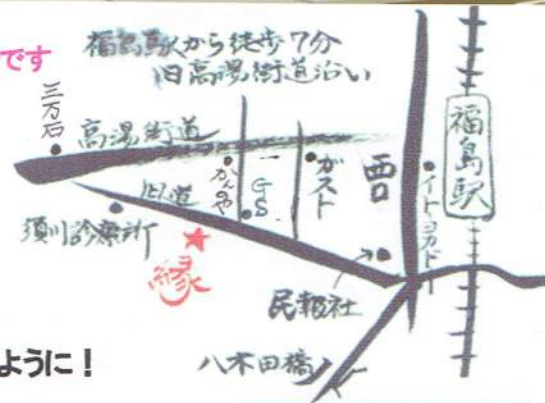 です
福島駅から徒歩7分
旧高湯街道沿い
三万石
高湯街道
旧道
かんのや
GS
ガスト
西口
イトーヨーカドー
福島駅
須川診療所
縁
民報社
八木田橋
ように!